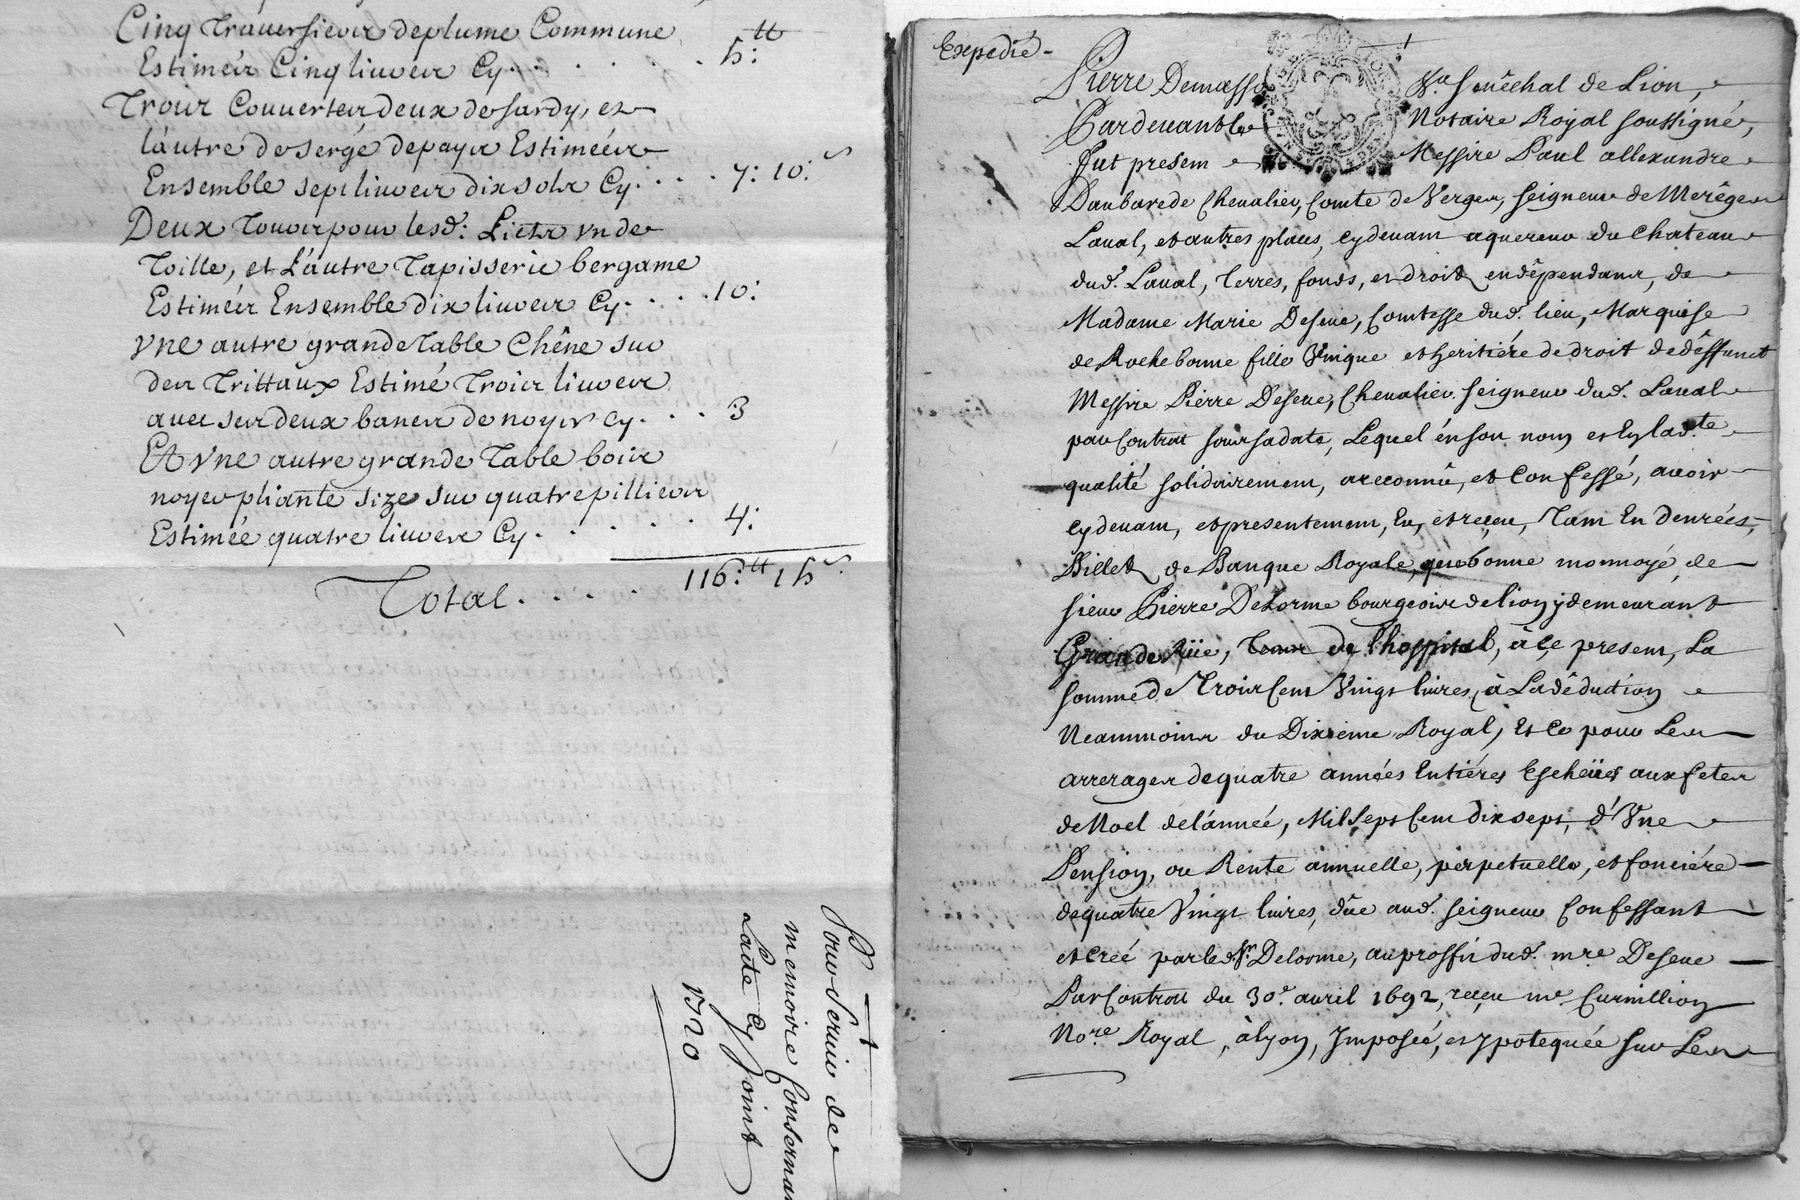 Cinq Traversieir deplume Commune
Estiméir Cinq liuveir Cy . . . . . . 5: tt
Troir Couverteir deux de sardy, et
láutre de sergé depayir Estiméeir
Ensemble sept liuveir dix solr Cy . . . . 7: 10: s
Deux Touoir pour lesd: Lietr vn de
Toille, et L'áutre Tapisserie bergame
Estiméir Ensemble dix liuveir Cy . . . . 10:
vne autre grande Table Chêne sur
der Trittaux Estimé Troir liuveir
avec ser deux bancr de noyer cy . . . 3
Et vne autre grande Table boir
noyer pliante size sur quatre pillieir
Estimée quatre liuver Cy . . . . . . 4:
Total . . . . . 116: tt 15 s
Pour Seruir de
memoire Consernan
Lacte Cy Joint
1720
Expedié -
Pierre Demasso Sr. Senéchal de Lion,
Pardeuant le Notaire Royal soussigné,
fut presem Messire Paul allexandre
Daubarede Chevalier, Comte de Verger, seigneur de Merêger
Laual, et autres places, cydeuam aquereur du Chateau
dud. Laual, Terres, fonds, et droit endêpendanr, de
Madame Marie Deseue, Comtesse dud. lieu, Marquise
de Rochebonne fille Vnique et heritiére de droit de dêffunct
Messire Pierre Deseue, Chevalier seigneur dud. Laual
par Contrat sour sa date, Lequel én son nom et Ey lad.te
qualité solidairemem, a reconnû, et Confessé, avoir
cydeuam, et presentemem, Eu, et reçeu, Tam En denrées,
Billet de Banque Royale, que bonne monnoyé, de
sieur Pierre DeLorme bourgeoir de liony demeurant
Grande Rüe, de l'hospital, à ce presem, La
somme de Troir Cem Vingt livres, à La dêduction
Neammoinr du Dixieme Royal, Et Ce pour Ler
arrerager de quatre années Entiéres Escheües aux feter
de Noel de l'année, Mil Sept Cem dix sept, d'Vne
Pension, ou Rente ánnuelle, perpetuelle, et fonciére
de quatre Vingt livres, dûe aud. seigneur Confessant
et creé par led. Sr. Delorme, au proffit dud. mre Deseue
Par Contrat du 30e. avril 1692, reçeu me. Curnillion
Nore Royal, à lyon, Imposée, et ypotequée sur Ler